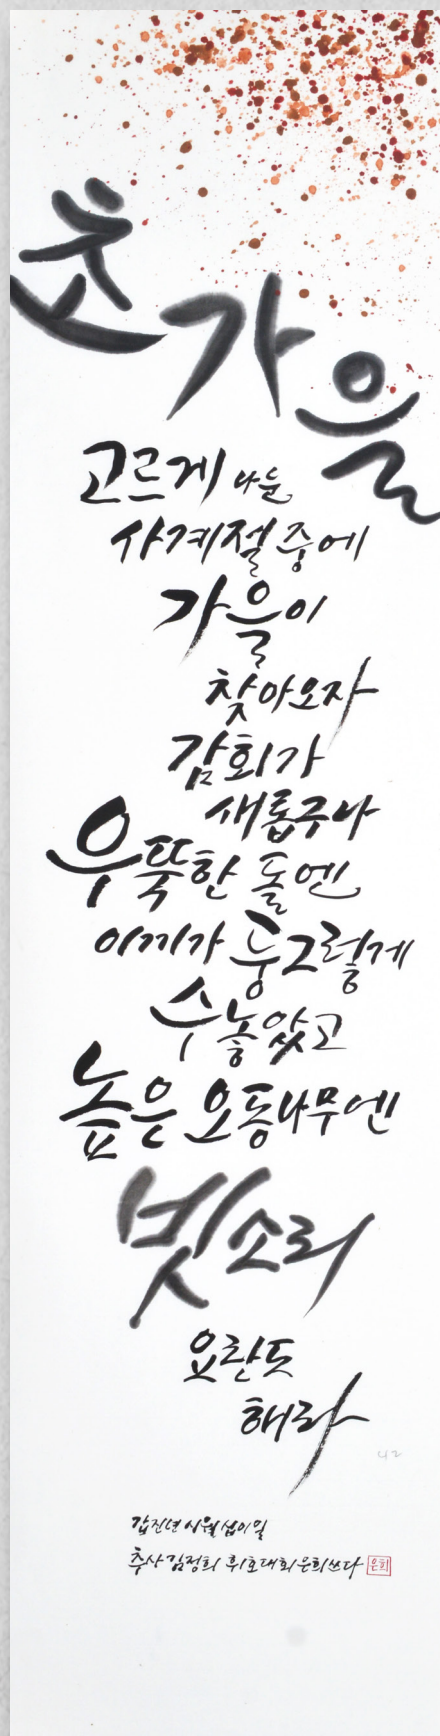 초가을
고르게 나눈
사계절 중에
가을이
찾아오자
감회가
새롭구나
우뚝한 돌엔
이끼가 둥그렇게
수놓았고
높은 오동나무엔
빗소리
요란도
해라
42
갑진년 시월 십이일
추사 김정희 휘호대회 은희 쓰다
은희